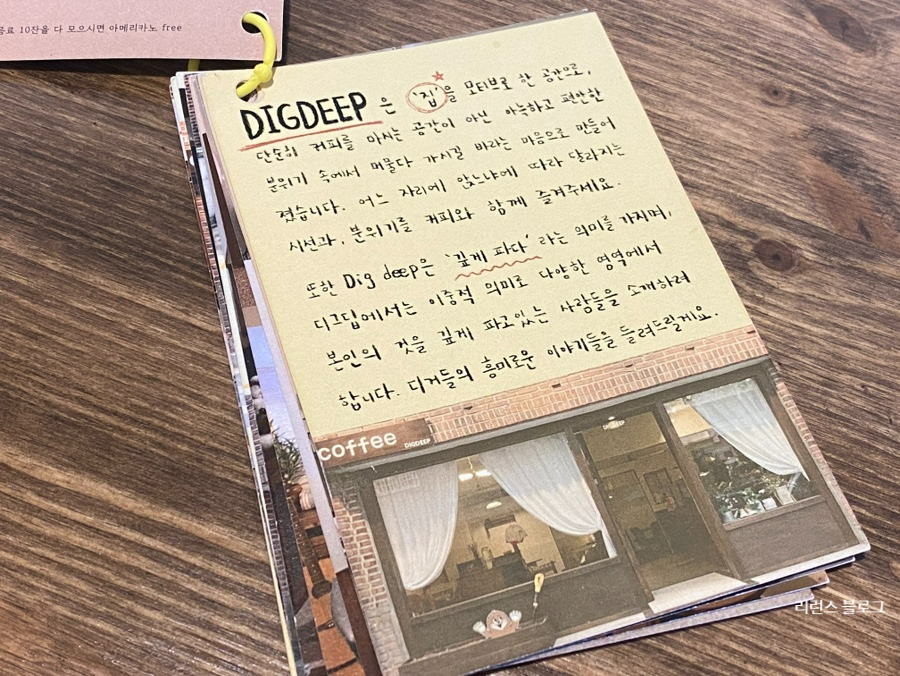 음료 10잔을 다 모으시면 아메리카노 free
DIGDEEP 은 '집'을 모티브로 한 공간으로,
단순히 커피를 마시는 공간이 아닌 아늑하고 편안한
분위기 속에서 머물다 가시길 바라는 마음으로 만들어
졌습니다. 어느 자리에 앉느냐에 따라 달라지는
시선과, 분위기를 커피와 함께 즐겨주세요.
또한 Dig deep은 '깊게 파다' 라는 의미를 가지며,
디그딥에서는 이중적 의미로 다양한 영역에서
본인의 것을 깊게 파고있는 사람들을 소개하려
합니다. 디거들의 흥미로운 이야기들을 들려드릴게요.
coffee DIGDEEP
DIGDEEP
리런스 블로그